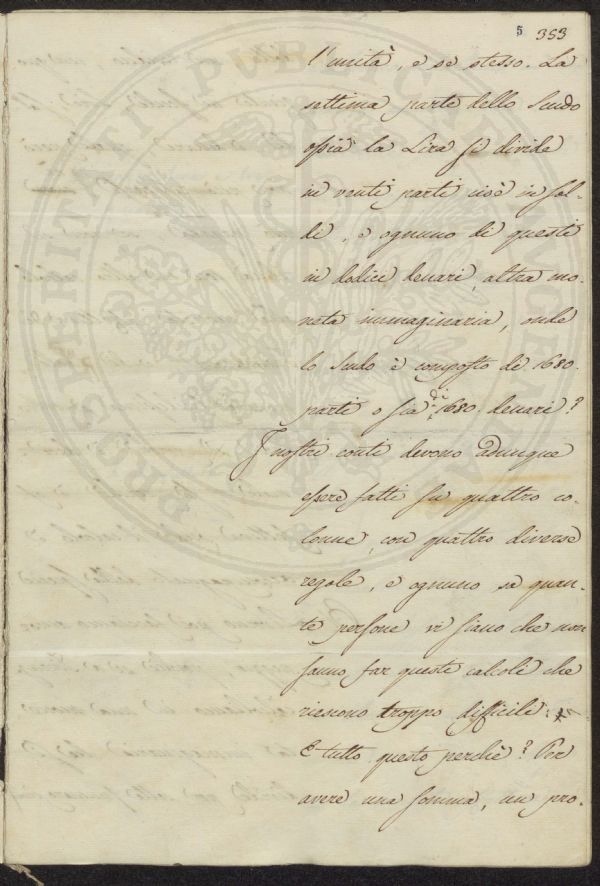 5 353
l'unità, e se stesso. La
settima parte dello Scudo
ossia la Lira si divide
in venti parti cioè in sol-
di, e ognuno di questi
in dodici denari, altra mo-
neta immaginaria, onde
lo Scudo è composto di 1680.
parti o sia di 1680. denari?
I nostri conti devono adunque
essere fatti su quattro co-
lonne, con quattro diverse
regole, e ognuno sa quan-
te persone vi siano che non
sanno far questi calcoli che
riescono troppo difficili.
E tutto questo perchè? Per
avere una somma, un pro-